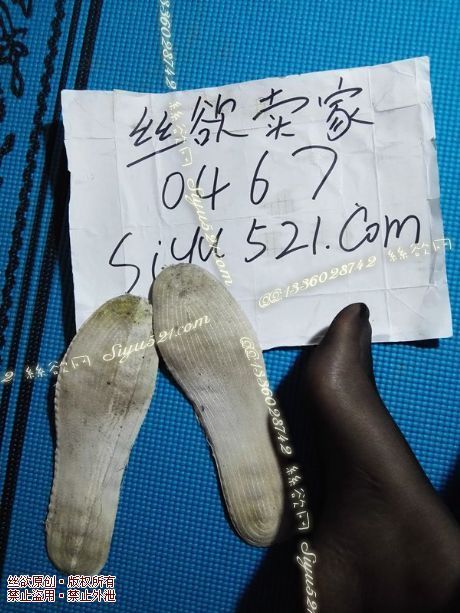 丝欲卖家
0467
Siyu521.Com
@@:1336028742 絲欲网 Siyu521.com
@@:1336028742 絲欲网
2 絲欲网 Siyu521.com
@@:1336028742 絲欲网 Siyu521
丝欲原创·版权所有
禁止盗用·禁止外泄